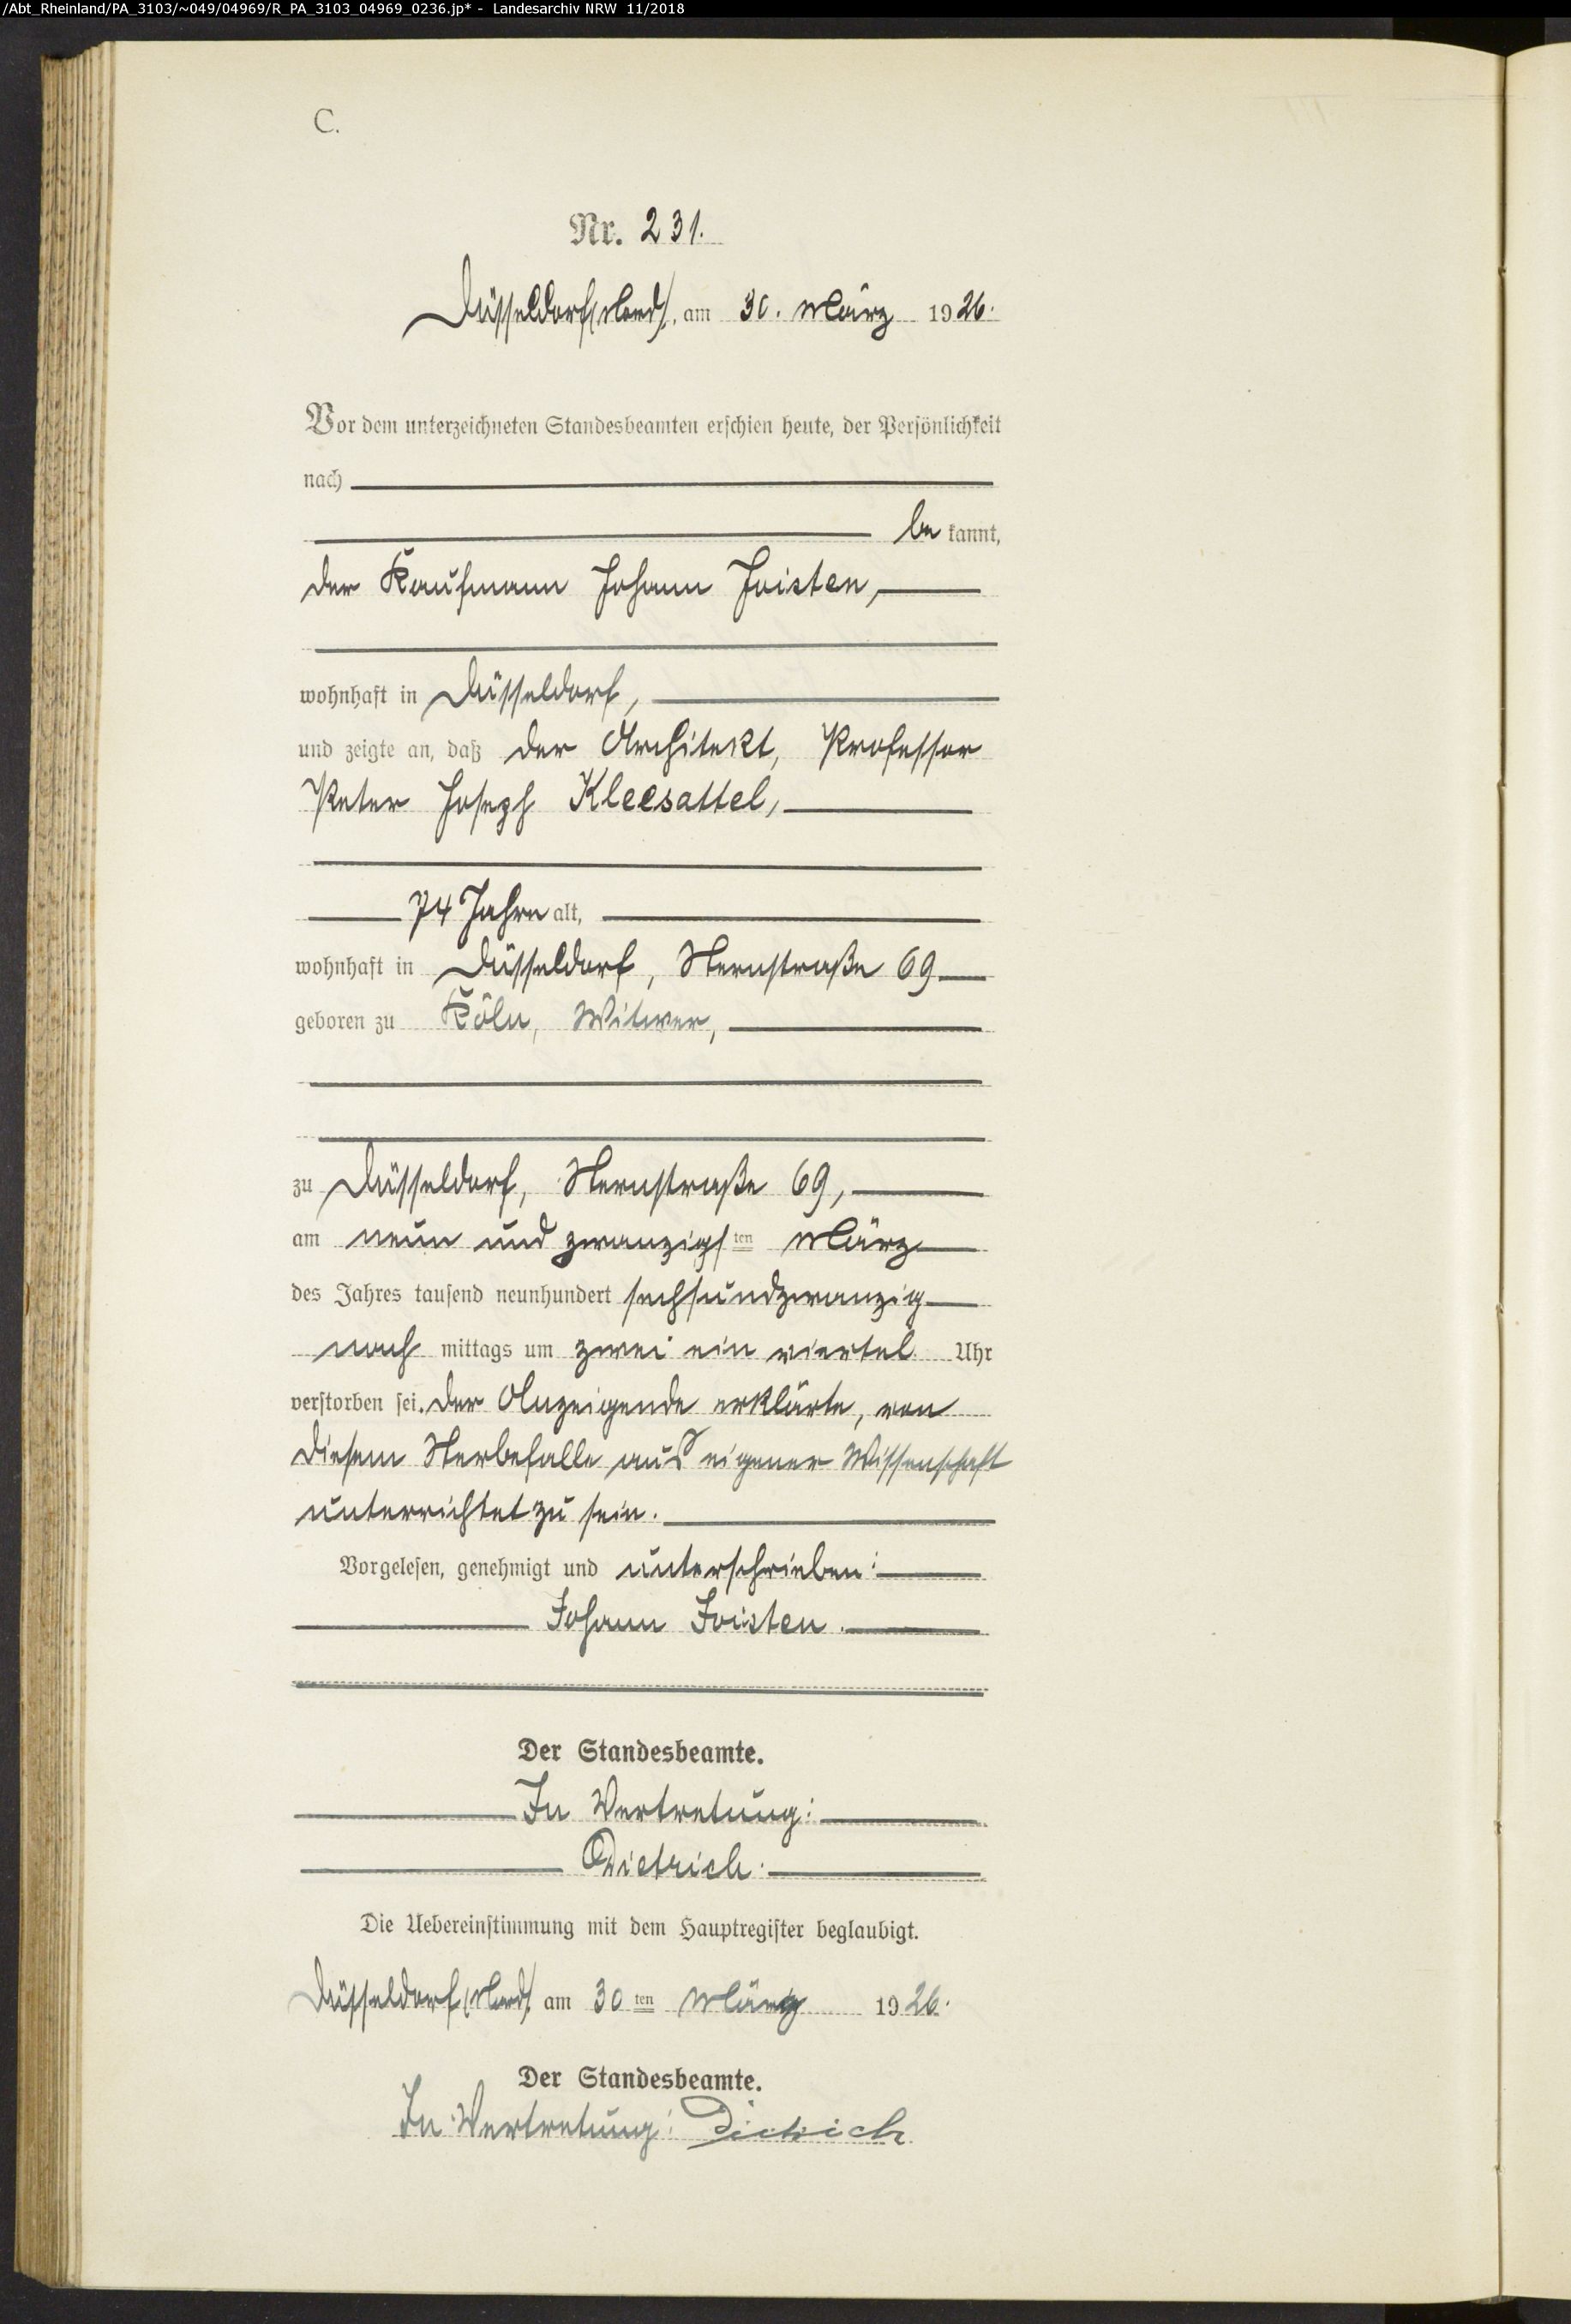 /Abt_Rheinland/PA_3103/~049/04969/R_PA_3103_04969_0236.jp* - Landesarchiv NRW 11/2018
C.
Nr. 231.
Düsseldorf (Nord), am 30. März 1926.
Vor dem unterzeichneten Standesbeamten erschien heute, der Persönlichkeit
nach
be kannt,
der Kaufmann Johann Joisten,
wohnhaft in Düsseldorf,
und zeigte an, daß der Architekt, Professor
Peter Joseph Kleesattel,
74 Jahre alt,
wohnhaft in Düsseldorf, Sternstraße 69
geboren zu Köln, Witwer,
zu Düsseldorf, Sternstraße 69,
am neun und zwanzigsten März
des Jahres tausend neunhundert sechsundzwanzig
nach mittags um zwei ein viertel Uhr
verstorben sei. Der Anzeigende erklärte, von
diesem Sterbefalle aus eigener Wissenschaft
unterrichtet zu sein.
Vorgelesen, genehmigt und unterschrieben:
Johann Joisten.
Der Standesbeamte.
In Vertretung:
Dietrich.
Die Uebereinstimmung mit dem Hauptregister beglaubigt.
Düsseldorf (Nord), am 30ten März 1926.
Der Standesbeamte.
In Vertretung: Dietrich